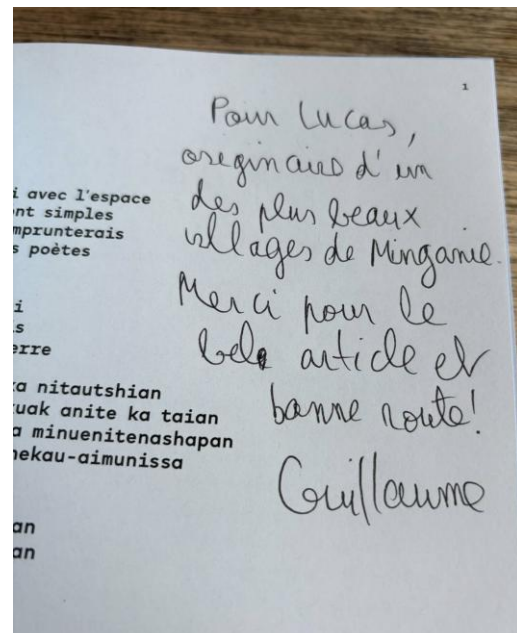 1
Pour Lucas,
originaire d'un
des plus beaux
villages de Minganie.
Merci pour le
bel article et
bonne route!
Guillaume
i avec l'espace
nt simples
mprunterais
s poètes
i
s
erre
a nitautshian
uak anite ka taian
a minuenitenashapan
nekau-aimunissa
an
an